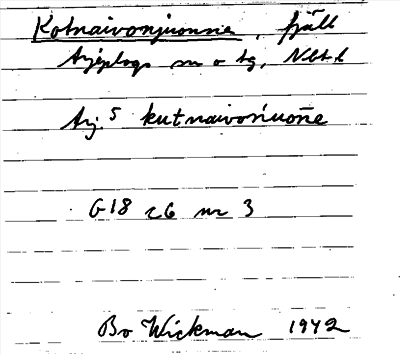 Kotnaivonjuonne, fjäll
Arjeplogs sn o tg, Nbt. l.
Arj. 5 kutnaivońuōńe
G18 c6 nr 3
Bo Wickman 1942